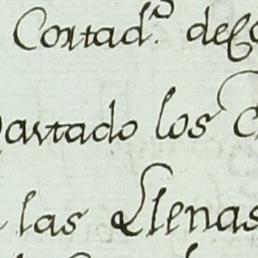 Cortad.º de
artado los
las Llenas